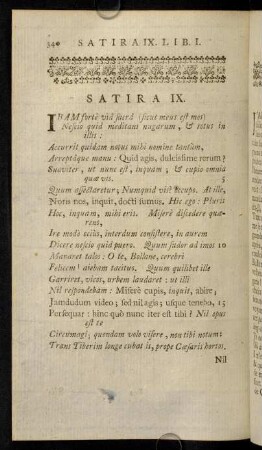 34 SATIRA IX. LIB. I.
SATIRA IX.
IBAM fortè viâ sacrâ (sicut meus est mos)
Nescio quid meditans nugarum, & totus in
illis:
Accurrit quidam notus mihi nomine tantùm,
Arreptâque manu: Quid agis, dulcissime rerum?
Suaviter, ut nunc est, inquam; & cupio omnia
quæ vis. 5
Quum assectaretur, Numquid vis? occupo. At ille,
Noris nos, inquit, docti sumus. Hic ego: Pluris
Hoc, inquam, mihi eris. Miserè discedere quæ-
rens,
Ire modò ociùs, interdum consistere, in aurem
Dicere nescio quid puero. Quum sudor ad imos 10
Manaret talos: O te, Bollane, cerebri
Felicem! aiebam tacitus. Quum quidlibet ille
Garriret, vicos, urbem laudaret: ut illi
Nil respondebam: Miserè cupis, inquit, abire;
Jamdudum video; sed nil agis; usque tenebo, 15
Persequar: hinc quò nunc iter est tibi? Nil opus
est te
Circumagi; quendam volo visere, non tibi notum:
Trans Tiberim longe cubat is, prope Cæsaris hortos.
Nil